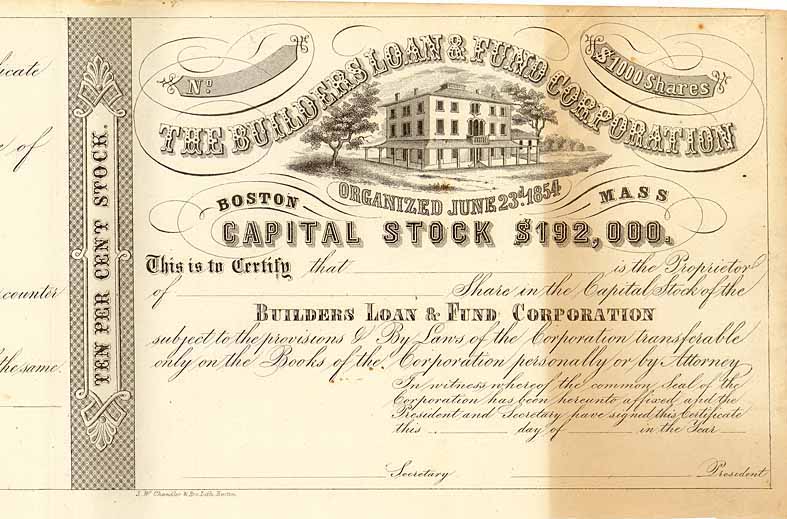 icate
e of
counter
the same.
TEN PER CENT STOCK.
No.
$1000 Shares
THE BUILDERS LOAN & FUND CORPORATION
BOSTON
ORGANIZED JUNE 23d. 1854
MASS
CAPITAL STOCK $192,000.
This is to Certify that is the Proprietor
of Share in the Capital Stock of the
BUILDERS LOAN & FUND CORPORATION
subject to the provisions & By Laws of the Corporation transferable
only on the Books of the Corporation personally or by Attorney
In witness whereof the common Seal of the
Corporation has been hereunto affixed and the
President and Secretary have signed this Certificate
this day of in the Year
Secretary President
J. W. Chandler & Bro. Lith. Boston.